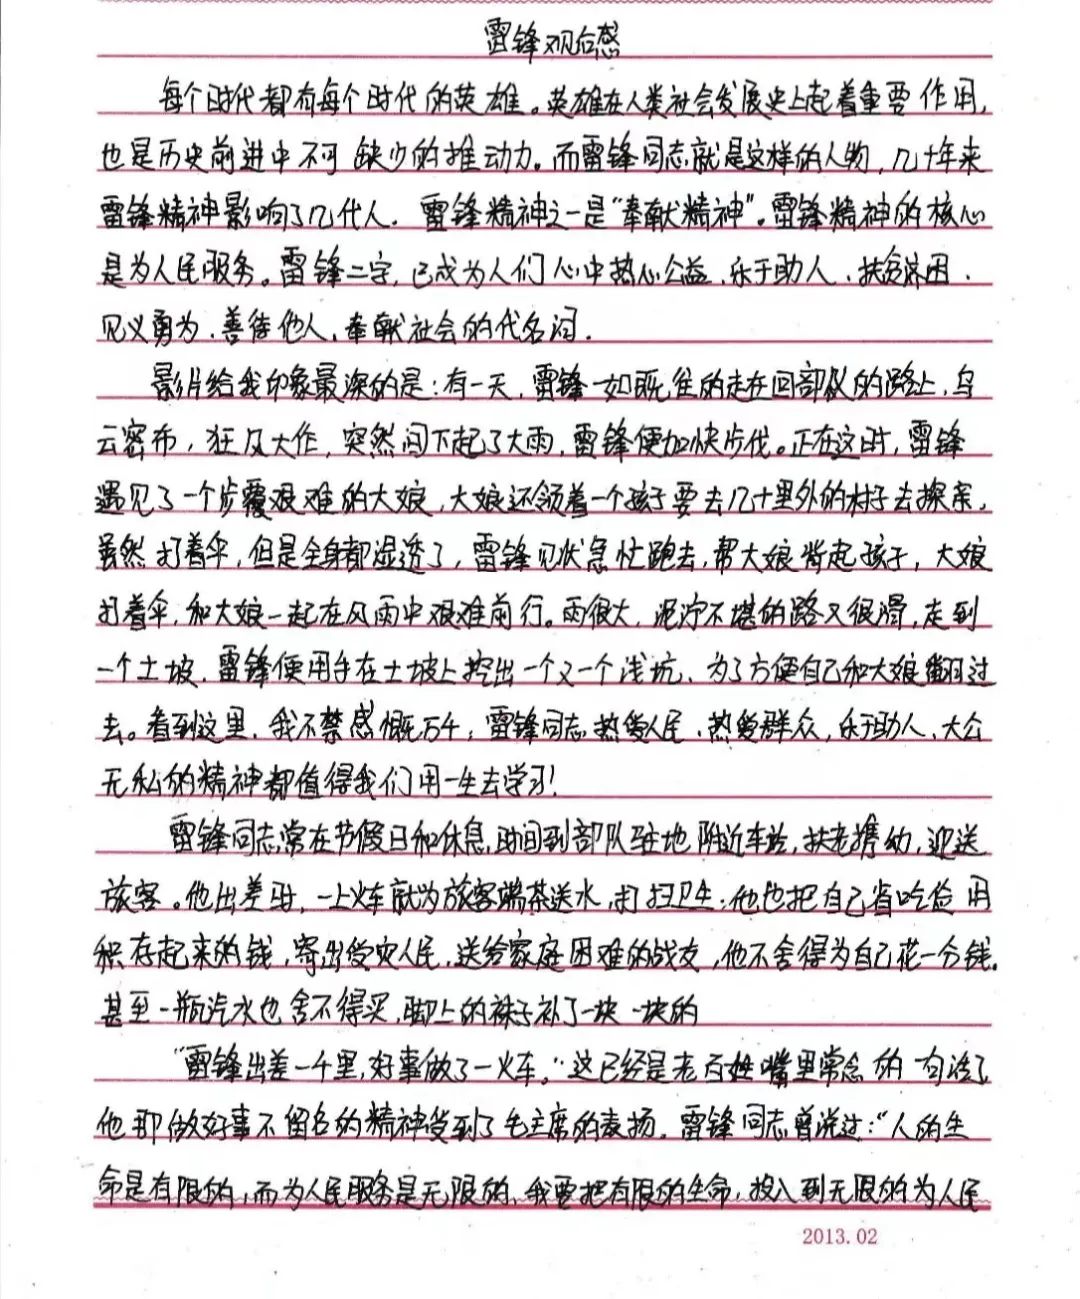 雷锋观后感
每个时代都有每个时代的英雄。英雄在人类社会发展史上起着重要作用,
也是历史前进中不可缺少的推动力。而雷锋同志就是这样的人物,几十年来
雷锋精神影响了几代人. 雷锋精神之一是"奉献精神"。雷锋精神的核心
是为人民服务。雷锋二字,已成为人们心中热心公益、乐于助人、扶贫济困、
见义勇为、善待他人、奉献社会的代名词.
影片给我印象最深的是:有一天,雷锋一如既往的走在回部队的路上,乌
云密布,狂风大作,突然间下起了大雨,雷锋便加快步伐。正在这时,雷锋
遇见了一个步履艰难的大娘,大娘还领着一个孩子要去几十里外的村子去探亲,
虽然打着伞,但是全身都湿透了,雷锋见状急忙跑去,帮大娘背起孩子,大娘
打着伞,和大娘一起在风雨中艰难前行。雨很大,泥泞不堪的路又很滑,走到
一个土坡,雷锋便用手在土坡上挖出一个又一个浅坑、为了方便自己和大娘翻过
去。看到这里,我不禁感慨万千,雷锋同志热爱人民、热爱群众,乐于助人、大公
无私的精神都值得我们用一生去学习!
雷锋同志常在节假日和休息时间到部队驻地附近车站,扶老携幼,迎送
旅客。他出差时,一上火车就为旅客端茶送水,打扫卫生;他也把自己省吃俭用
积存起来的钱,寄出受灾人民,送给家庭困难的战友,他不舍得为自己花一分钱,
甚至一瓶汽水也舍不得买,脚上的袜子补了一块一块的
"雷锋出差一千里,好事做了一火车。"这已经是老百姓嘴里常念的句话了
他那做好事不留名的精神受到了毛主席的表扬。雷锋同志曾说过:"人的生
命是有限的,而为人民服务是无限的,我要把有限的生命,投入到无限的为人民
2013.02